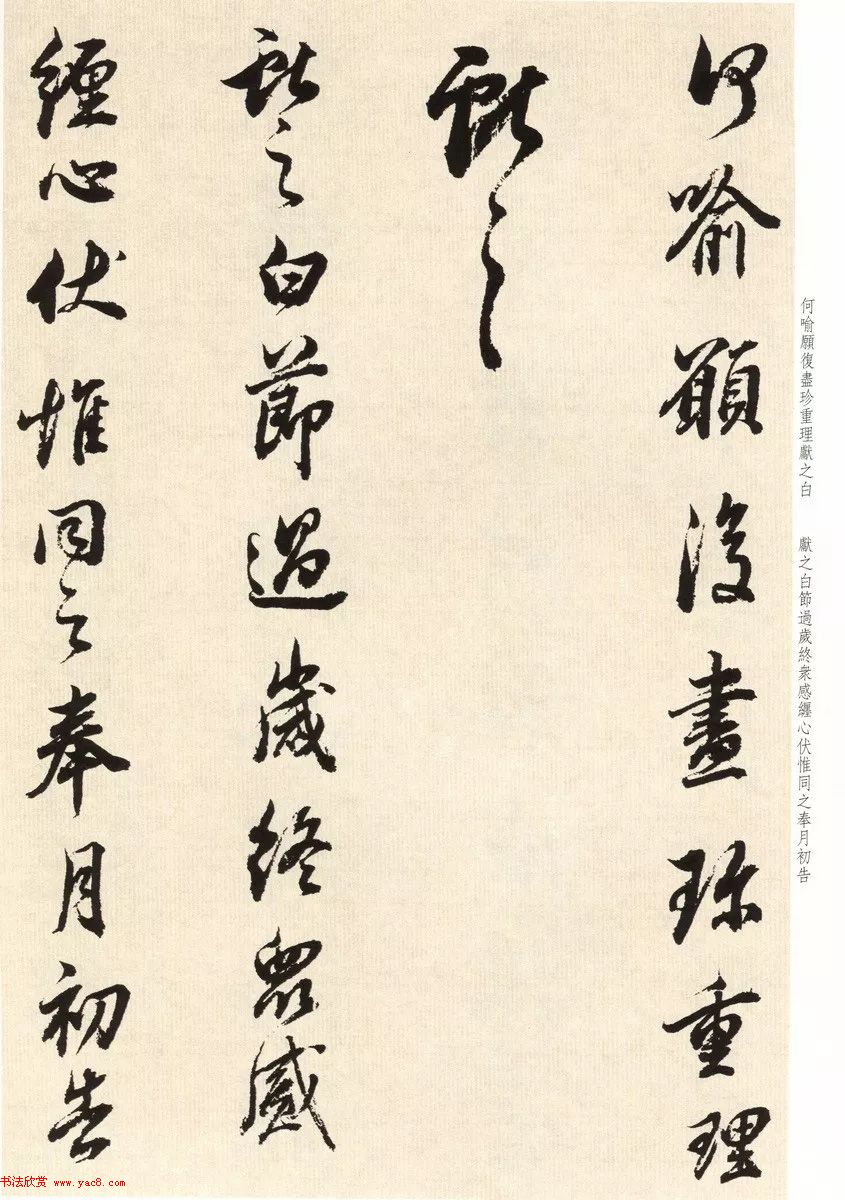 何喻願復盡珍重理
獻之
獻之白節過歲終衆感
纏心伏惟同之奉月初告
何喻願復盡珍重理獻之白 獻之白節過歲終衆感纏心伏惟同之奉月初告
书法欣赏 www.yac8.com